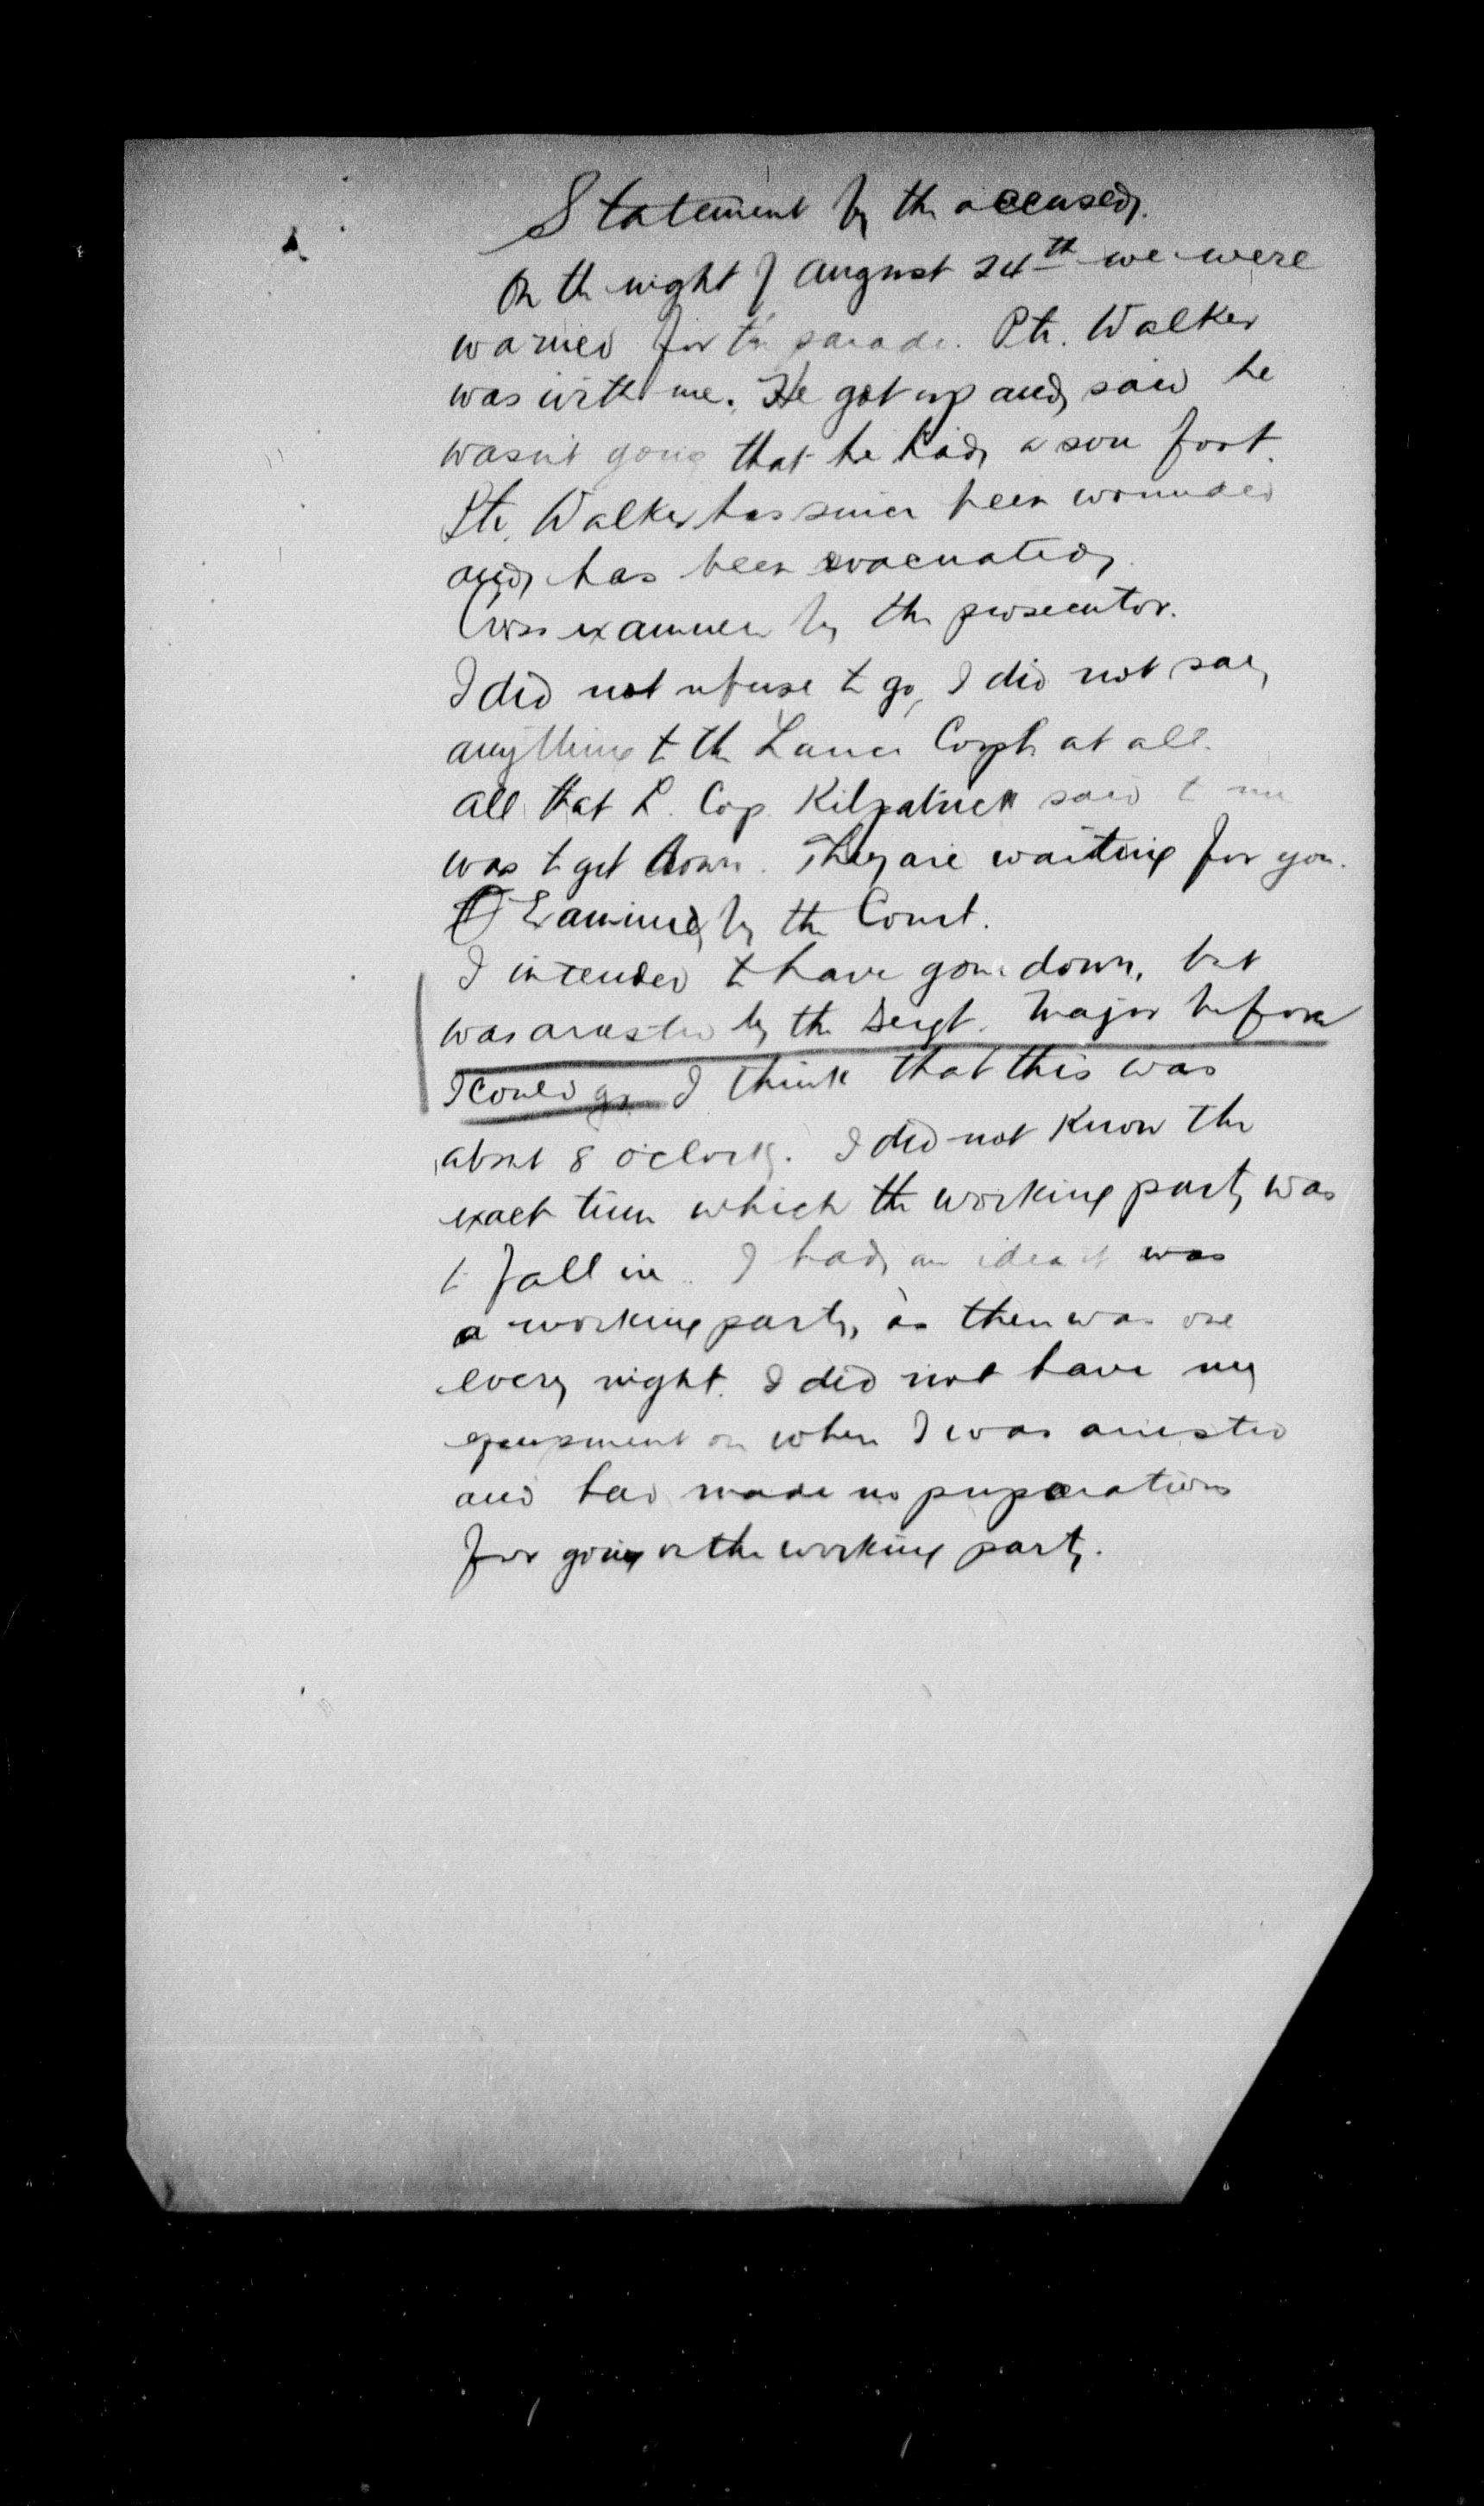 Statement by the accused.
On the night of August 24th we were
warned for the parade. Pte. Walker
was with me. He got up and said he
wasn't going that he had a sore foot.
Pte. Walker has since been wounded
and has been evacuated.
Cross examined by the prosecutor.
I did not refuse to go, I did not say
anything to the Lance Corpl. at all.
All that L. Cop. Kilpatrick said to me
was to get down. They are waiting for you.
Examined by the Court.
I intended to have gone down, but
was arrested by the Sergt. Major before
I could go. I think that this was
about 8 o'clock. I did not know the
exact time which the working party was
to fall in. I had an idea it was
a working party, as there was one
every night. I did not have my
equipment on when I was arrested
and had made no preparations
for going on the working party.